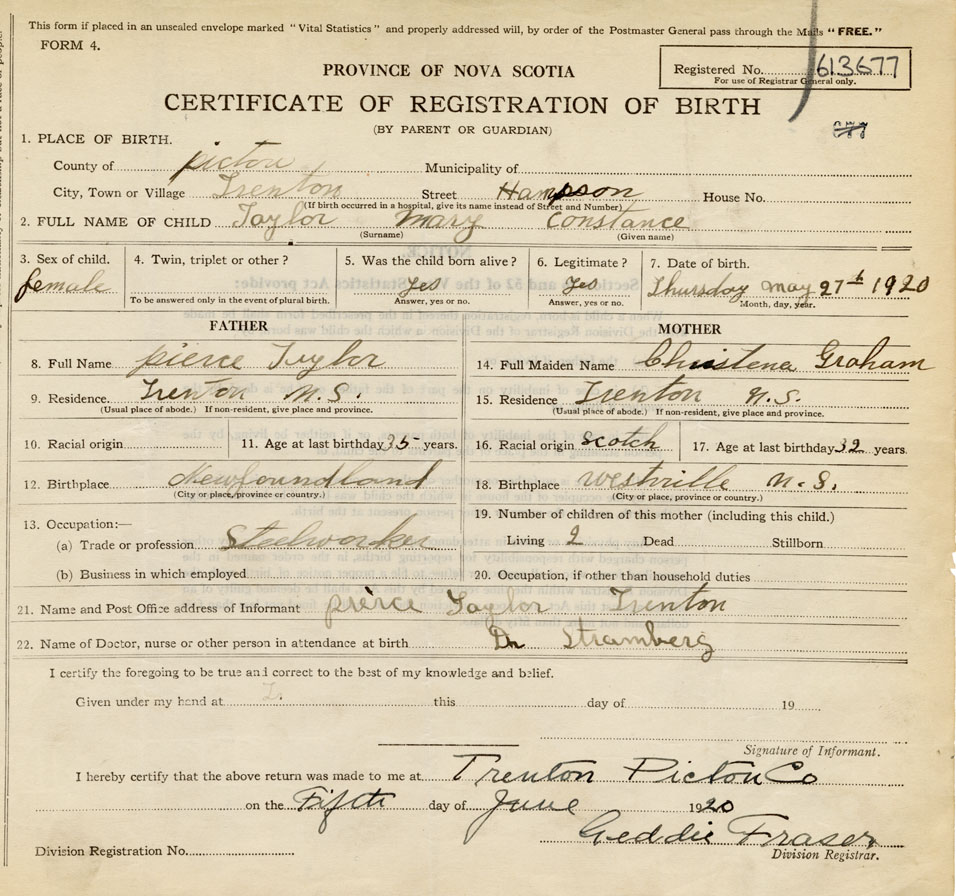 This form if placed in an unsealed envelope marked "Vital Statistics" and properly addressed will, by order of the Postmaster General pass through the Mails "FREE."
FORM 4.
Registered No. 613677
For use of Registrar General only.
PROVINCE OF NOVA SCOTIA
CERTIFICATE OF REGISTRATION OF BIRTH
(BY PARENT OR GUARDIAN)
677
1. PLACE OF BIRTH.
County of pictou Municipality of
City, Town or Village Trenton Street Hampson House No.
(If birth occurred in a hospital, give its name instead of Street and Number)
2. FULL NAME OF CHILD Taylor Mary Constance
(Surname) (Given name)
3. Sex of child. 4. Twin, triplet or other? 5. Was the child born alive? 6. Legitimate? 7. Date of birth.
female Yes Yes Thursday May 27th 1920
To be answered only in the event of plural birth. Answer, yes or no. Answer, yes or no. Month, day, year.
FATHER MOTHER
8. Full Name pierce Taylor 14. Full Maiden Name Christena Graham
9. Residence. Trenton N.S. 15. Residence Trenton N.S.
(Usual place of abode.) If non-resident, give place and province. (Usual place of abode.) If non-resident, give place and province.
10. Racial origin 11. Age at last birthday 35 years. 16. Racial origin Scotch 17. Age at last birthday 32 years.
12. Birthplace Newfoundland 18. Birthplace Westville N.S.
(City or place, province or country.) (City or place, province or country.)
13. Occupation:— 19. Number of children of this mother (including this child.)
(a) Trade or profession Steelworker Living 2 Dead Stillborn
(b) Business in which employed 20. Occupation, if other than household duties
21. Name and Post Office address of Informant pierce Taylor Trenton
22. Name of Doctor, nurse or other person in attendance at birth Dr Stramberg
I certify the foregoing to be true and correct to the best of my knowledge and belief.
Given under my hand at this day of 19
Signature of Informant.
I hereby certify that the above return was made to me at Trenton Pictou Co
on the Fifth day of June 1920
Geddie Fraser
Division Registration No. Division Registrar.